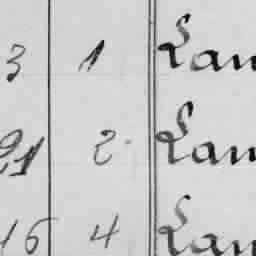 3 1 Lan
21 2 Lan
16 4 Lan